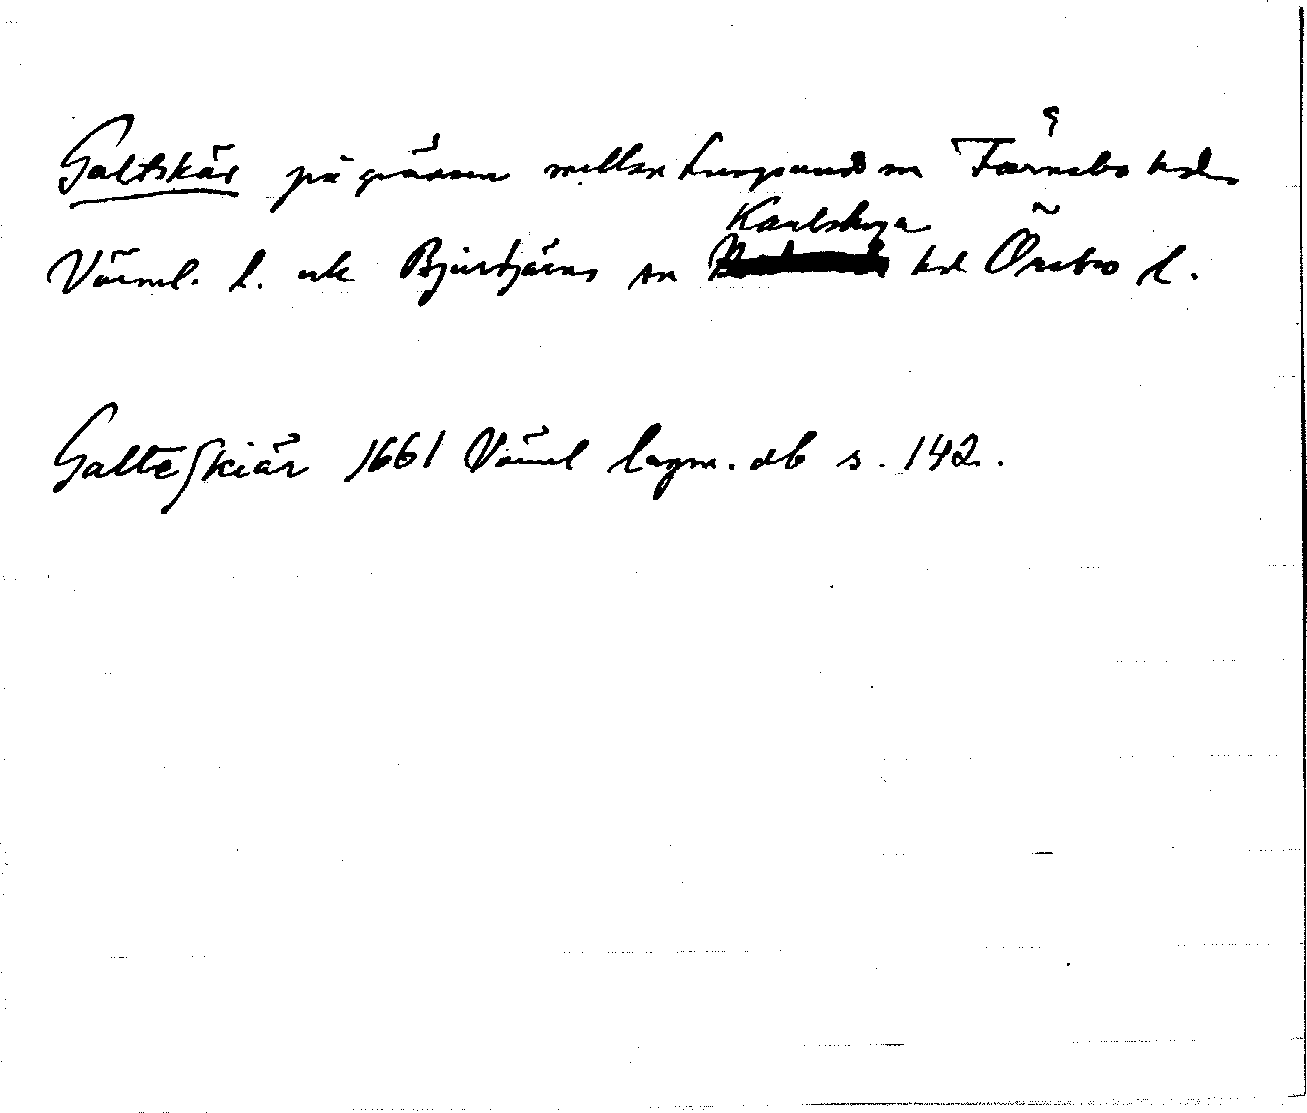 Galtskär på gränsen mellan Lungsund sn Färnebo hd
Värml. l. och Bjurtjärns sn Karlskoga hd Örebro l.
Galteskiär 1661 Värml lagm. db s. 142.